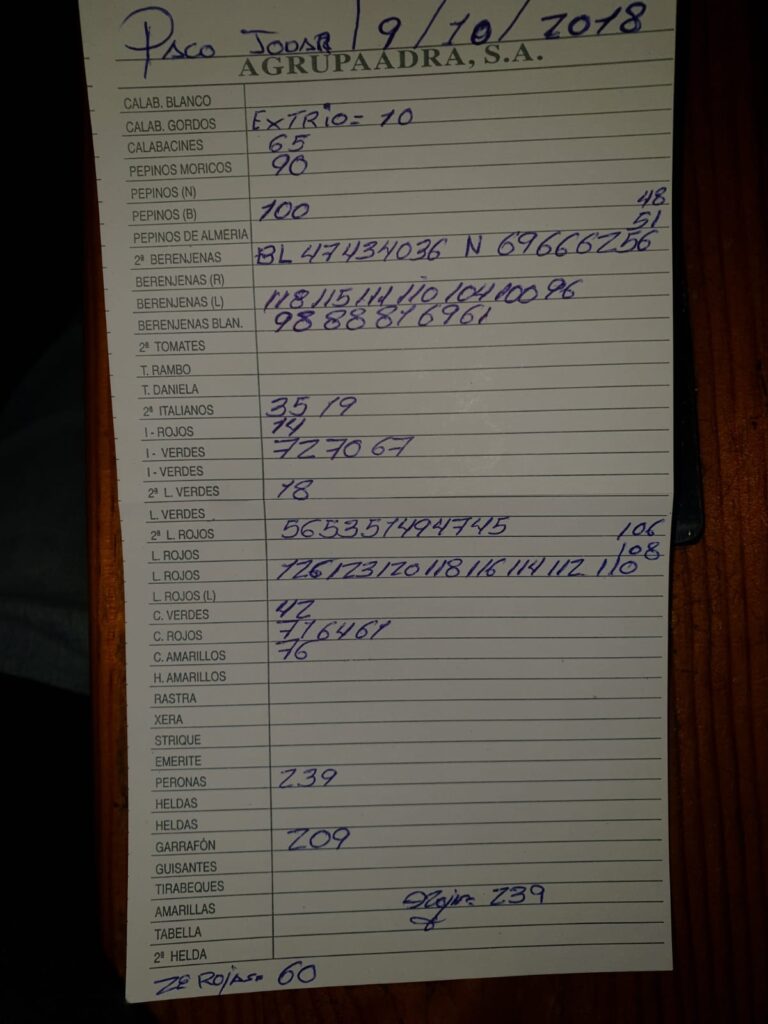 Paco Jodar / 9 / 10 / 2018
AGRUPAADRA, S.A.
CALAB. BLANCO
CALAB. GORDOS EXTRIO= 10
CALABACINES 65
PEPINOS MORICOS 90
PEPINOS (N)
PEPINOS (B) 100 48
PEPINOS DE ALMERIA 51
2ª BERENJENAS BL 47 43 40 36 N 69 66 62 56
BERENJENAS (R)
BERENJENAS (L) 118 115 111 110 104 100 96
BERENJENAS BLAN. 98 88 81 69 61
2ª TOMATES
T. RAMBO
T. DANIELA
2ª ITALIANOS 35 19
I - ROJOS 14
I - VERDES 72 70 67
I - VERDES
2ª L. VERDES 18
L. VERDES
2ª L. ROJOS 56 53 51 49 47 45 106
L. ROJOS 108
L. ROJOS 126 123 120 118 116 114 112 110
L. ROJOS (L)
C. VERDES 42
C. ROJOS 71 64 61
C. AMARILLOS 76
H. AMARILLOS
RASTRA
XERA
STRIQUE
EMERITE
PERONAS 239
HELDAS
HELDAS
GARRAFÓN 209
GUISANTES
TIRABEQUES
AMARILLAS 239
TABELLA
2ª HELDA
60